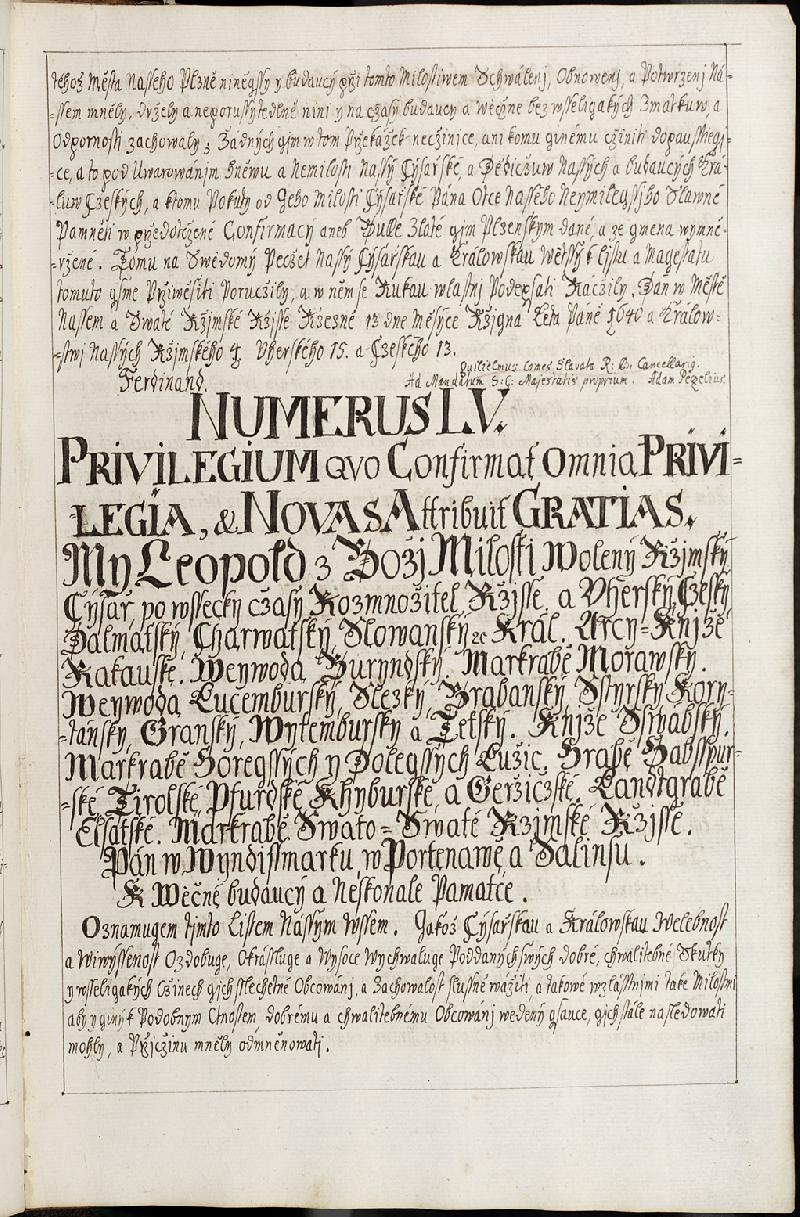 tehož Města Nasseho Plzně niněgssy y budaucy při tomto Milostiwem Schwálenj, Obnowenj, a Potwrzenj Ná-
-ssem mněly, držely a neporussytedlně nini y na cžasy budaucy a wěcyně bez wsseligakých Zmatkuw, a
Odpornosti zachowaly, Žadných gim w tom Přzekážek necžinice, ani komu ginému cžiniti dopausstiegj-
-ce, a to pod Uwarowánjm hněwu a Nemilosti Nassý Cýsařské, a Dědicžuw Nassých a budaucých Krá-
-luw Cžeských, a ktomu Pokuty od Geho Milosti Cýsařské Pána Otce Nasseho Neymilegssjho Slawné
Paměti w přzedoložené Confirmacý aneb Bulle Zlaté gim Plzenským dané, a ze gmena wymně-
-rzené. Tomu na Swědomý Pecžet Nassý Cýsařskau a Králowskau Wětssý k listu a Magestatu
tomuto gsme Přziwěsiti Porucžily, a w něm se Rukau wlastnj Podepsati Rácžily. Dan w Městě
Nassem a Swaté Ržjmské Ržjsse Ržezně 13 dne Měsýce Ržjgna Léta Páně 1640 a Králow-
-stwj Nassých Ržjmského 4. Uherského 15. a Cžeského 13.
Guilielmus Comes Slavata R: B: Cancellarig.
Ferdinand. Ad Mandatum S: C: Majestatis proprium. Adam Pecelius.
NUMERUS LV.
PRIVILEGIUM QVO Confirmat Omnia PRIVI=
-LEGIA, & NOVAS Attribuit GRATIAS.
My Leopold z Božj Milosti Wolený Ržjmský
Cýsař, po wssecky cžasy Rozmnožitel Ržjsse, a Uherský, Cžeský
Dalmatský, Charwatský, Slowanský ec Král. Arcy=Knjže
Rakauské. Weywoda Burgndský, Markrabě Morawský.
Weywoda Lucemburský, Slezký, Brabanský, Sstyrský Kory-
-tánský, Granský, Wytemburský a Tetský. Knjže Sswabský.
Markrabě Horegssých y Dolegssých Lužic, Hrabě Habsspur-
-ské Tirolské Pfurdské Khyburské, a Geržiczské, Landtgrabě
Elsatské. Markrabě Swato=Swaté Ržjmské Ržjsse.
Pán w Wyndissmarku, w Portenawě a Salinsu.
K Wěčné budaucý a Neskonale Pamatce.
Oznamugem tjmto Listem Nassým Wssem. Jakož Cýsařskau a Králowskau Welebnost
a Wiwýssenost Ozdobuge, Okrássluge a Wysoce Wychwaluge Poddaných swých dobré, chwalitebné Skutky
y wsseligakých Cžinech gich sslechetné Obcowánj, a Zachowalost slussně wážiti a takowé wzlásstnjmi také Milostmi
aby y ginj k Podobnym Ctnostem, dobrému a chwalitebnému Obcowánj wedeny gsauce, gich stále nasledowati
mohly, a Přjcžinu mněly odměnowati.